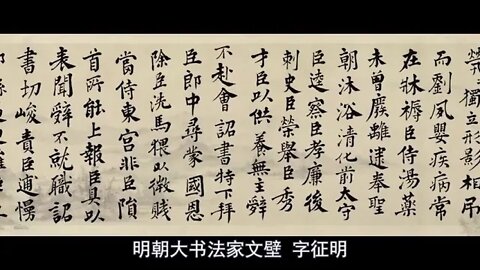 獨立形影相吊
而劉夙嬰疾病常
在牀褥臣侍湯藥
未曾廢離逮奉聖
朝沐浴清化前太守
臣逵察臣孝廉後
刺史臣榮舉臣秀
才臣以供養無主辭
不赴會詔書特下拜
臣郎中尋蒙國恩
除臣洗馬猥以微賤
當侍東宮非臣隕
首所能上報臣具以
表聞辭不就職詔
書切峻責臣逋慢
明朝大书法家文壁 字征明